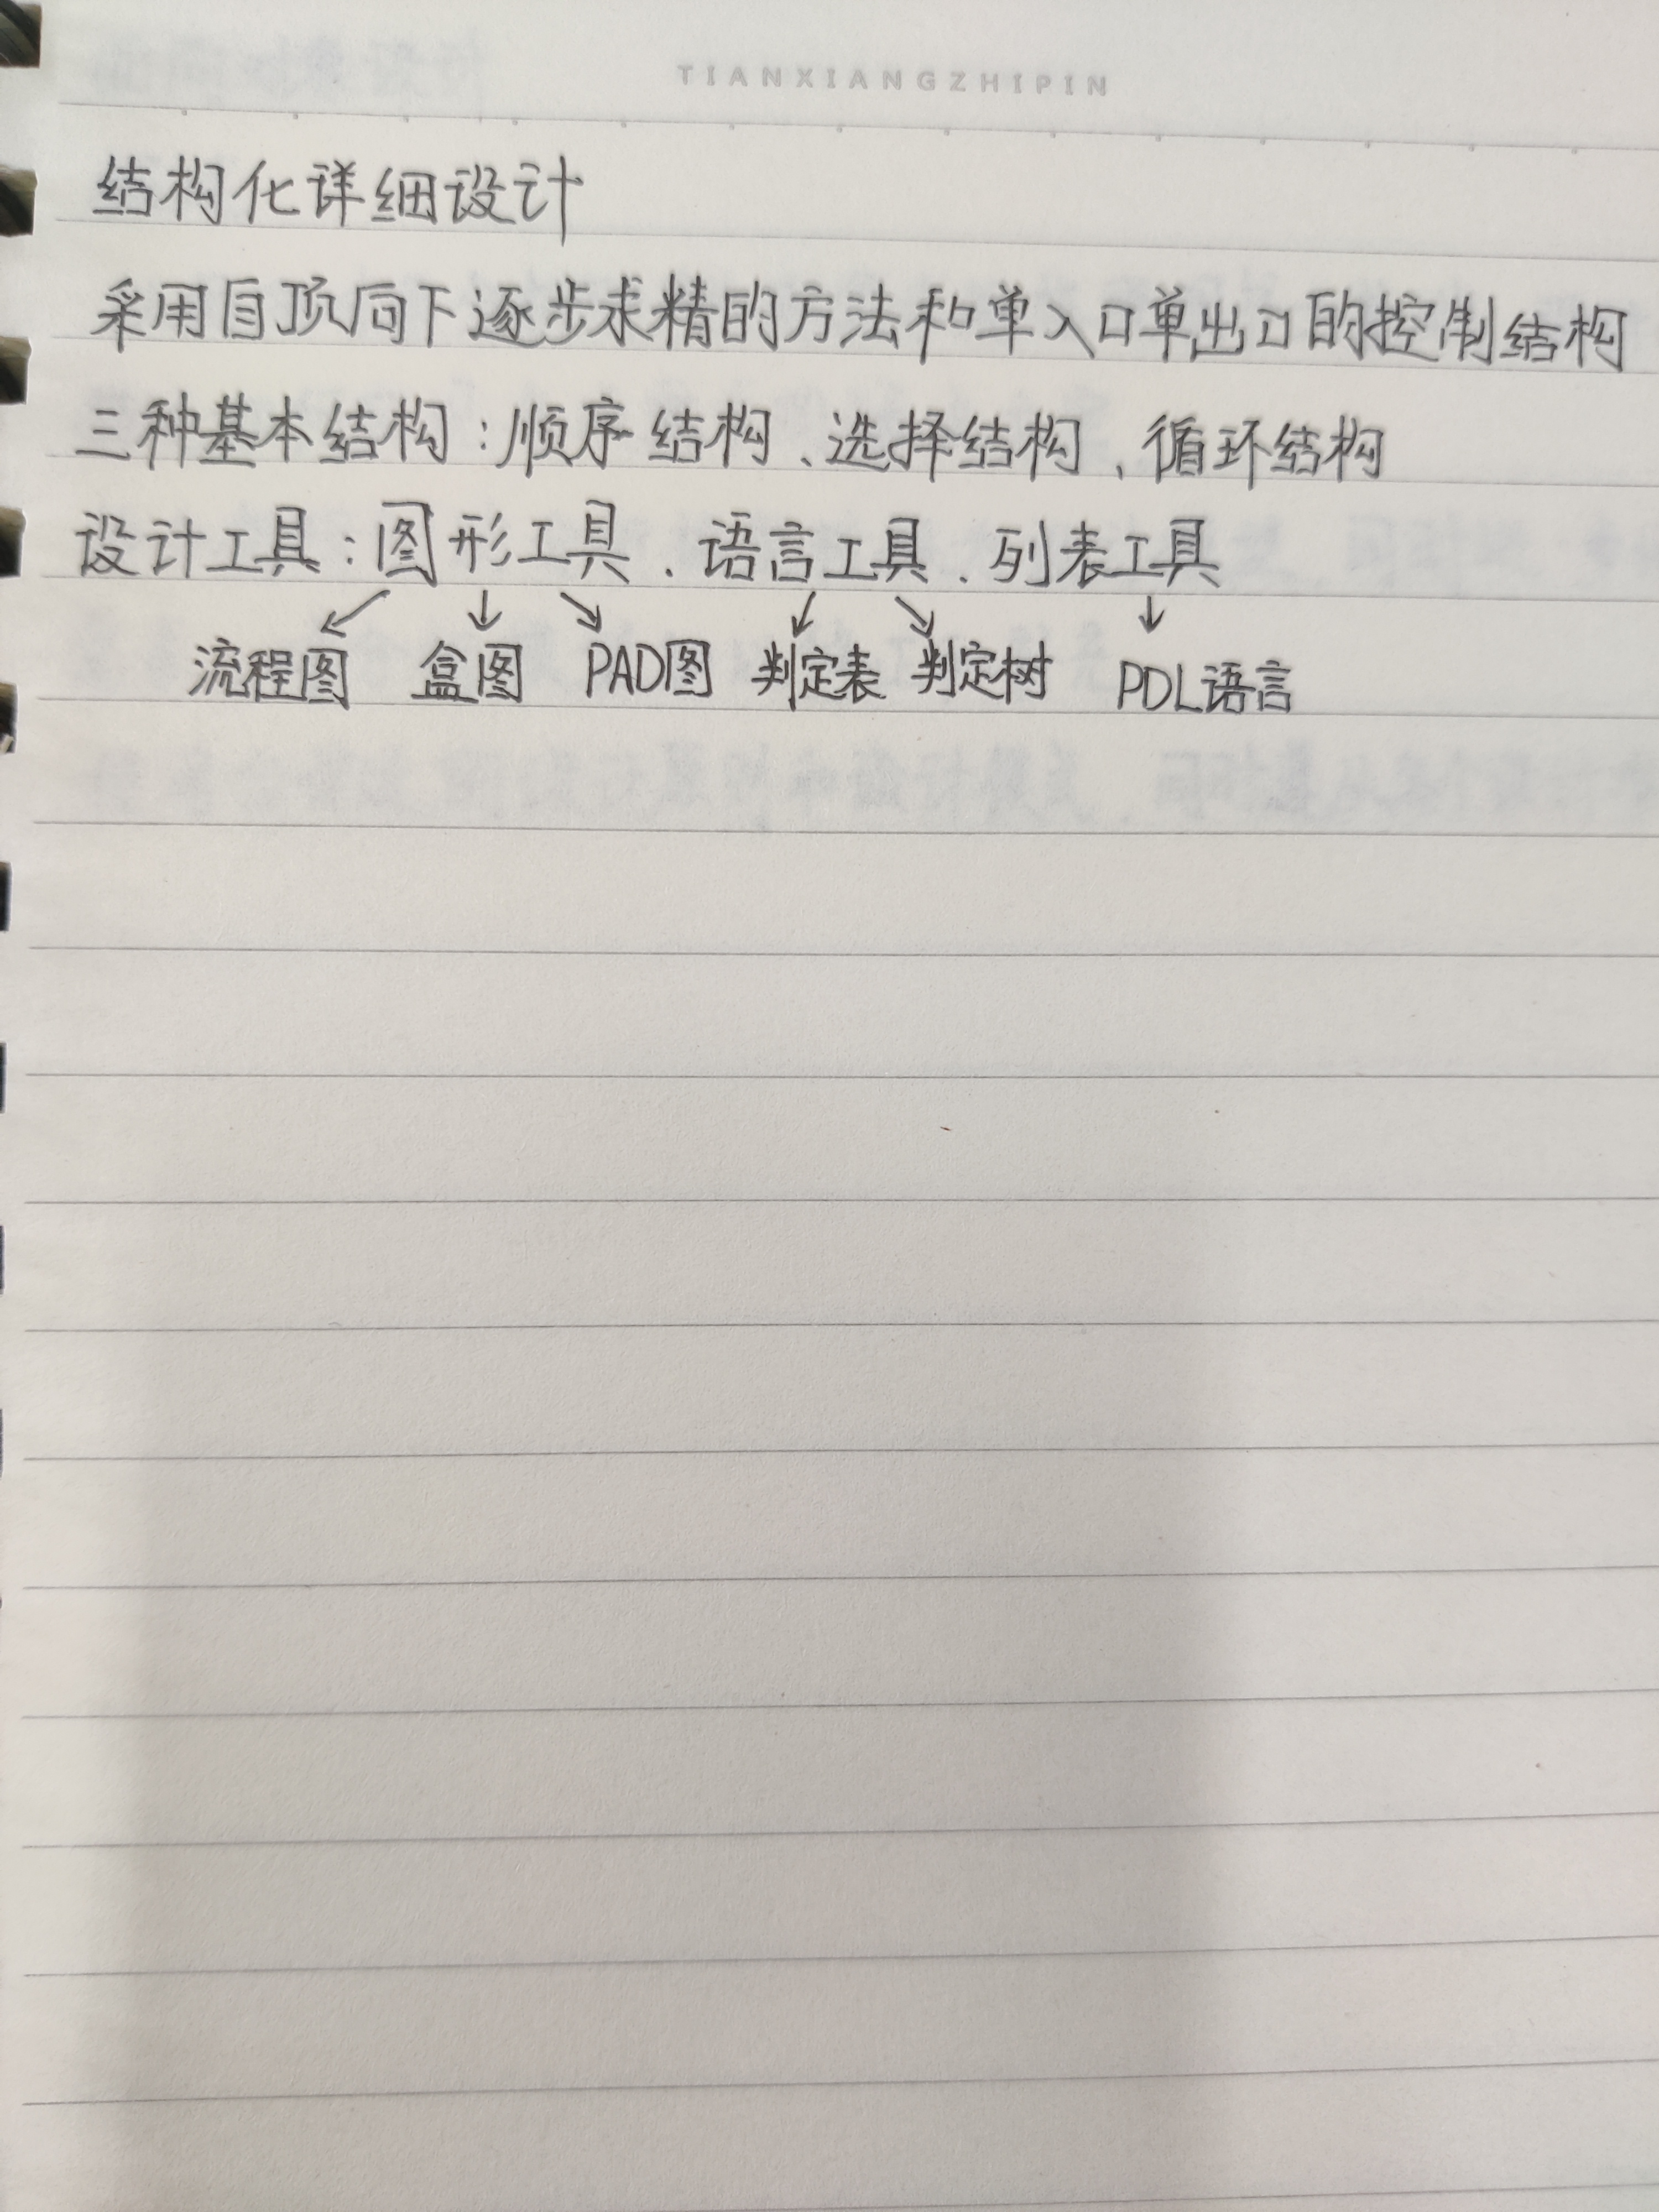 TIANXIANGZHIPIN
结构化详细设计
采用自顶向下逐步求精的方法和单入口单出口的控制结构
三种基本结构:顺序结构、选择结构、循环结构
设计工具:图形工具、语言工具、列表工具
流程图 盒图 PAD图 判定表 判定树 PDL语言